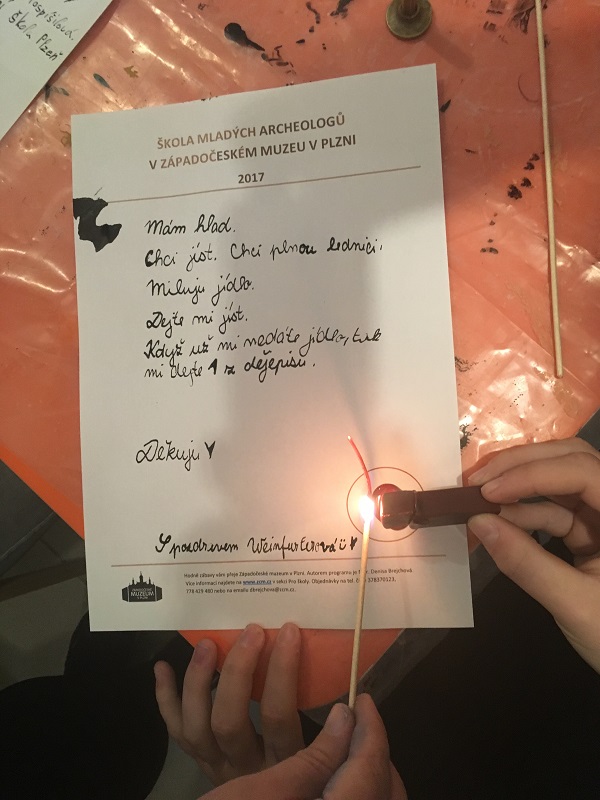 škola Plzeň
ŠKOLA MLADÝCH ARCHEOLOGŮ
V ZÁPADOČESKÉM MUZEU V PLZNI
2017
Mám hlad.
Chci jíst. Chci plnou lednici.
Miluju jídlo.
Dejte mi jíst.
Když už mi nedáte jídlo, tak
mi dejte 1 z dějepisu.
Děkuju
S pozdravem Weinfurterová
Hodně zábavy vám přeje Západočeské muzeum v Plzni. Autorem programu je Denisa Brejchová.
Více informací najdete na www.zcm.cz v sekci Pro školy. Objednávky na tel. 378370123,
778 429 480 nebo na emailu dbrejchova@zcm.cz.
ZÁPADOČESKÉ
MUZEUM
V PLZNI